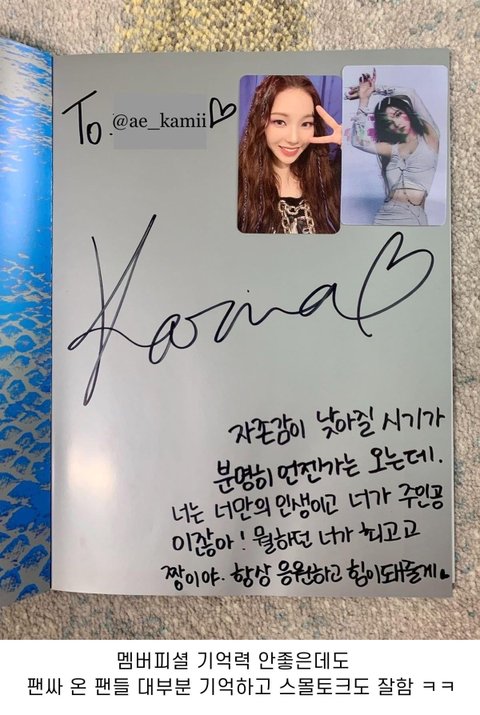 To. @ae_kamii♡
Karina♡
자존감이 낮아질 시기가
분명히 언젠가는 오는데.
너는 너만의 인생이고 너가 주인공
이잖아! 뭘하던 너가 최고고
짱이야. 항상 응원하고 힘이돼줄게♥
멤버피셜 기억력 안좋은데도
팬싸 온 팬들 대부분 기억하고 스몰토크도 잘함 ㅋㅋ